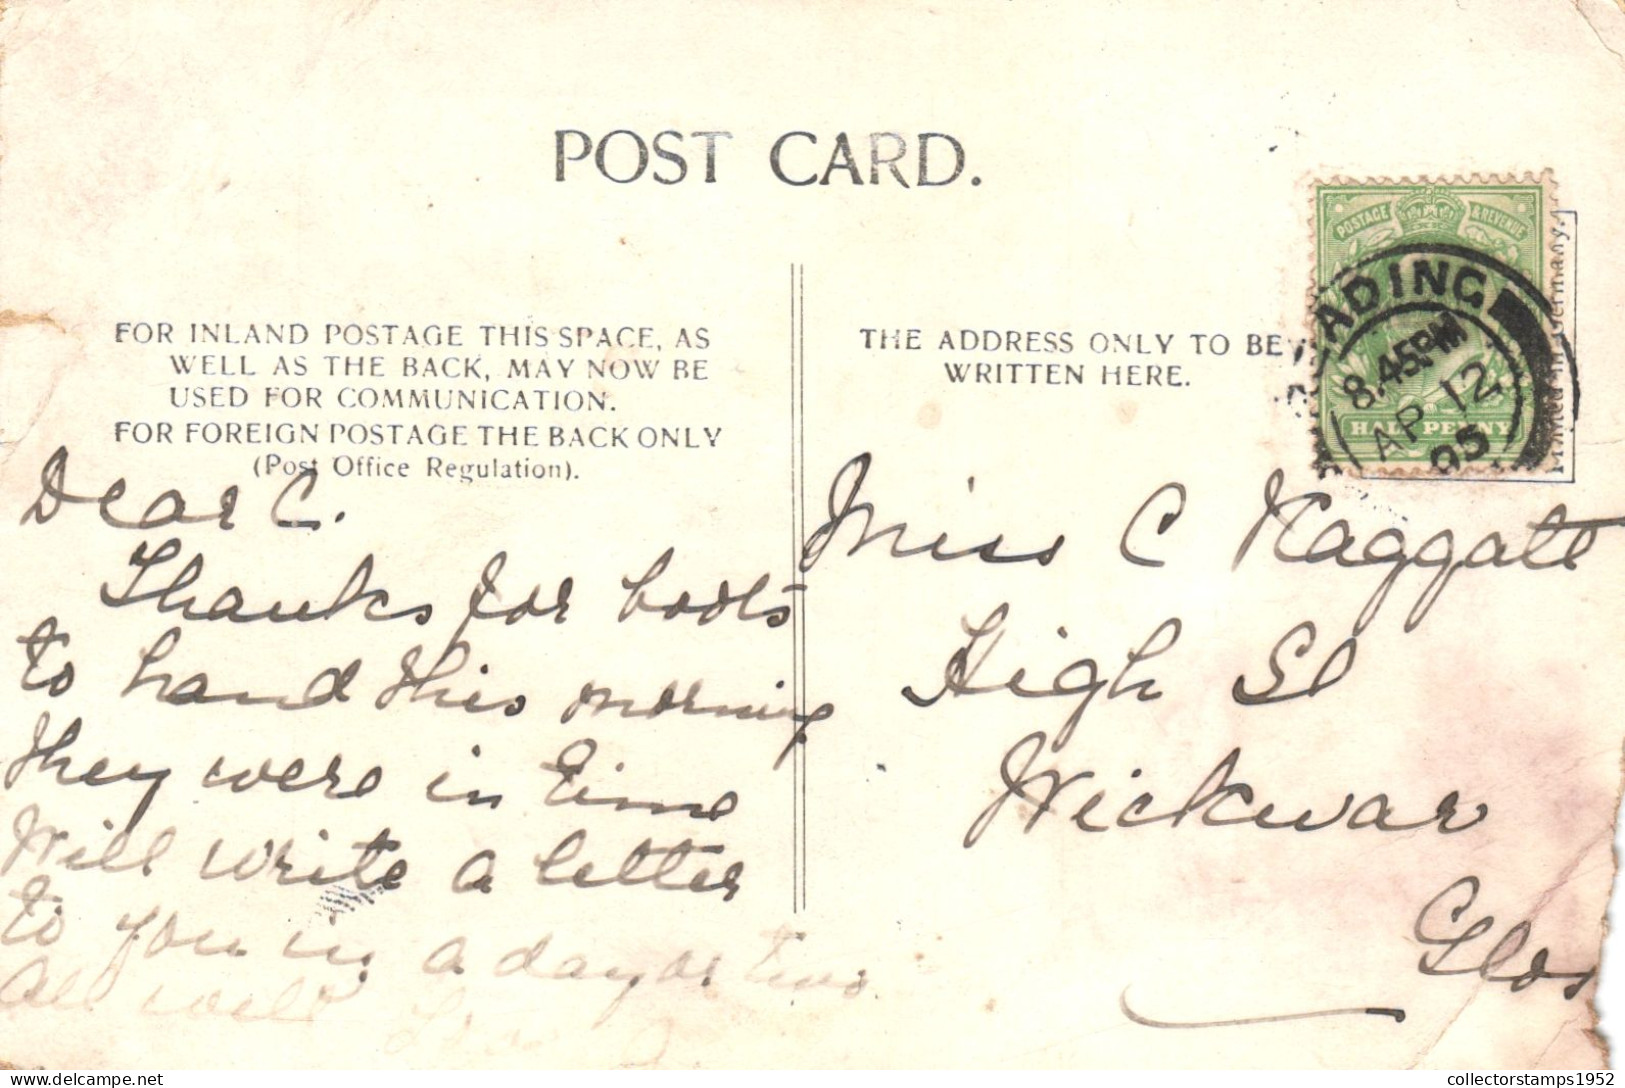 POST CARD.
POSTAGE & REVENUE
READING
8.45PM
AP 12
05
HALF PENNY
FOR INLAND POSTAGE THIS SPACE, AS
WELL AS THE BACK, MAY NOW BE
USED FOR COMMUNICATION.
FOR FOREIGN POSTAGE THE BACK ONLY
(Post Office Regulation).
THE ADDRESS ONLY TO BE
WRITTEN HERE.
Dear C.
Thanks for boots
to hand this morning
they were in time
Will write a letter
to you in a day or two
All well
Miss C Raggatt
High St
Wickwar
Glos
in Germany.
collectorstamps1952